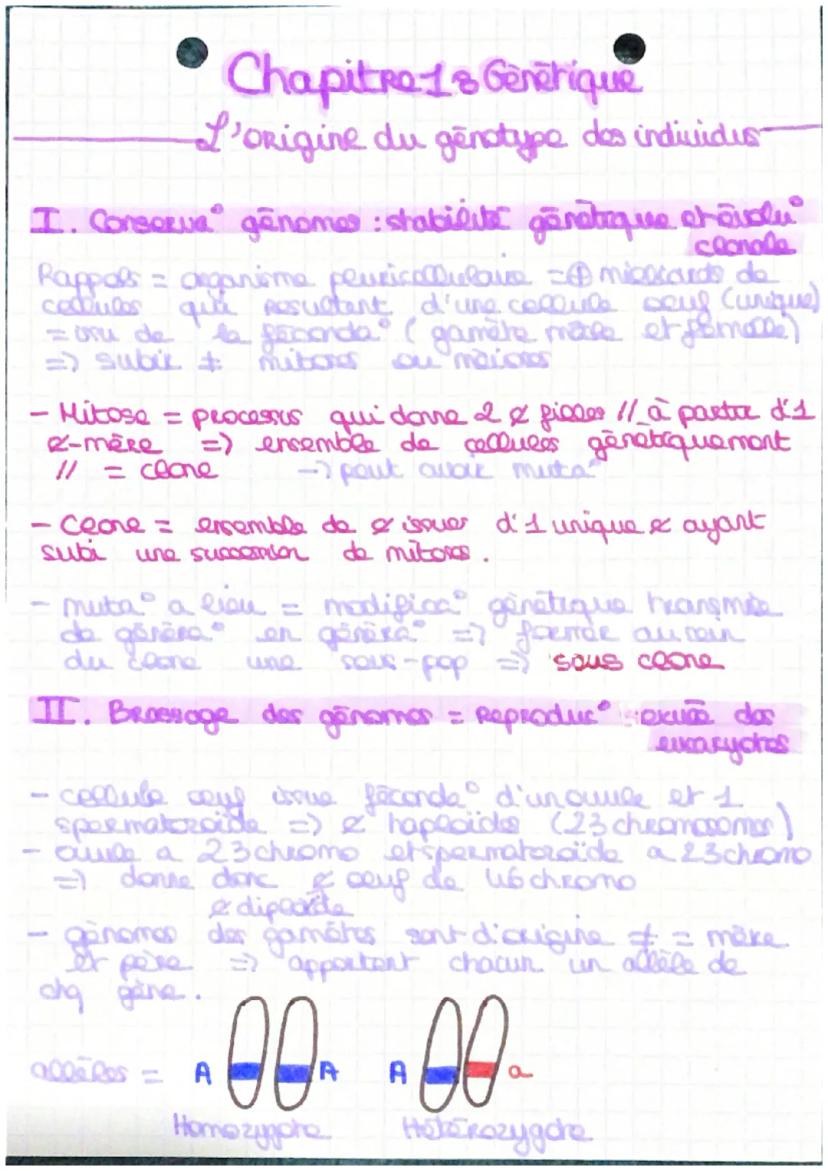 Chapitre 1 : Génétique
L'origine du génotype des individus
I. Conserva° génomes : stabilité génétique et évolu°
clonale
Rappels = organisme pluricellulaire = ⊕ milliards de
cellules qui resultent d'une cellule oeuf (unique)
= issu de la féconda° (gamète mâle et femelle)
=> subir ≠ mitoses ou méioses
- Mitose = processus qui donne 2 ¢ filles // à partir d'1
¢-mère => ensemble de cellules génétiquement
// = clone -> peut avoir muta°
- Clone = ensemble de ¢ issues d'1 unique ¢ ayant
subi une succession de mitoses .
- muta° a lieu = modifica° génétique transmise
de généra° en généra° => formée au sein
du clone une sous-pop => sous clone
II. Brassage des génomes = Reproduc° sexuée des
eucaryotes
- cellule oeuf issue féconda° d'un ovule et 1
spermatozoïde => ¢ haploïdes (23 chromosomes)
- ovule a 23 chromo et spermatozoïde a 23 chromo
=> donne donc ¢ oeuf de 46 chromo
¢ diploïde
- génomes des gamètes sont d'origine ≠ = mère
et père => apportent chacun un allèle de
chq gène .
allèles = A A A a
Homozygote Hétérozygote